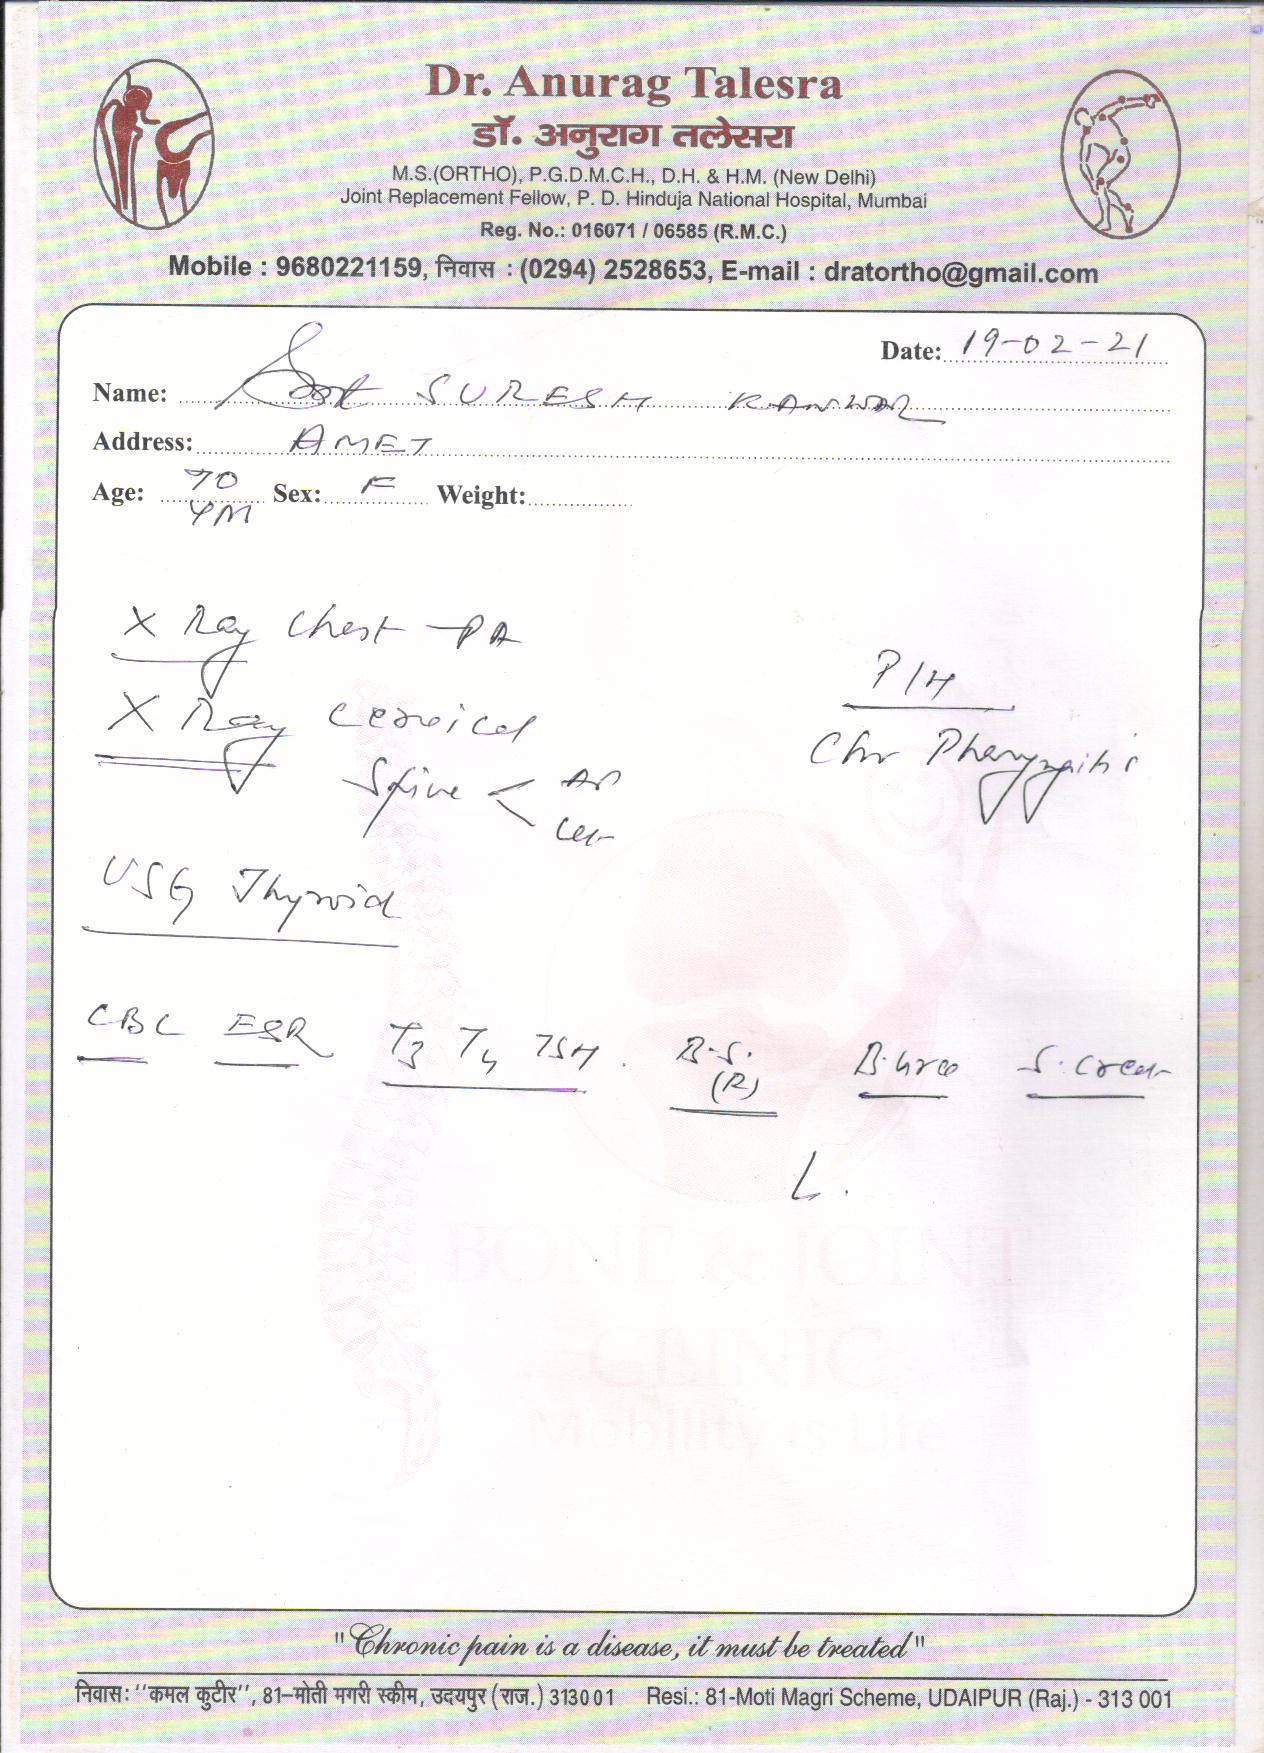 Dr. Anurag Talesra
डॉ. अनुराग तलेसरा
M.S.(ORTHO), P.G.D.M.C.H., D.H. & H.M. (New Delhi)
Joint Replacement Fellow, P. D. Hinduja National Hospital, Mumbai
Reg. No.: 016071 / 06585 (R.M.C.)
Mobile : 9680221159, निवास : (0294) 2528653, E-mail : dratortho@gmail.com
Date: 19-02-21
Name: SURESH KANWAR
Address: AMET
Age: 70 Sex: F Weight:
X Ray Chest - PA
P/H
X Ray Cervical
Chr Pharyngitis
Spine < AP
USG Thyroid
CBC ESR T3 T4 TSH. B.S. B.urea S.Creat
(R)
L.
BONE & JOINT
CLINIC
Mobility is Life
"Chronic pain is a disease, it must be treated"
निवास: "कमल कुटीर", 81-मोती मगरी स्कीम, उदयपुर (राज.) 313001 Resi.: 81-Moti Magri Scheme, UDAIPUR (Raj.) - 313 001